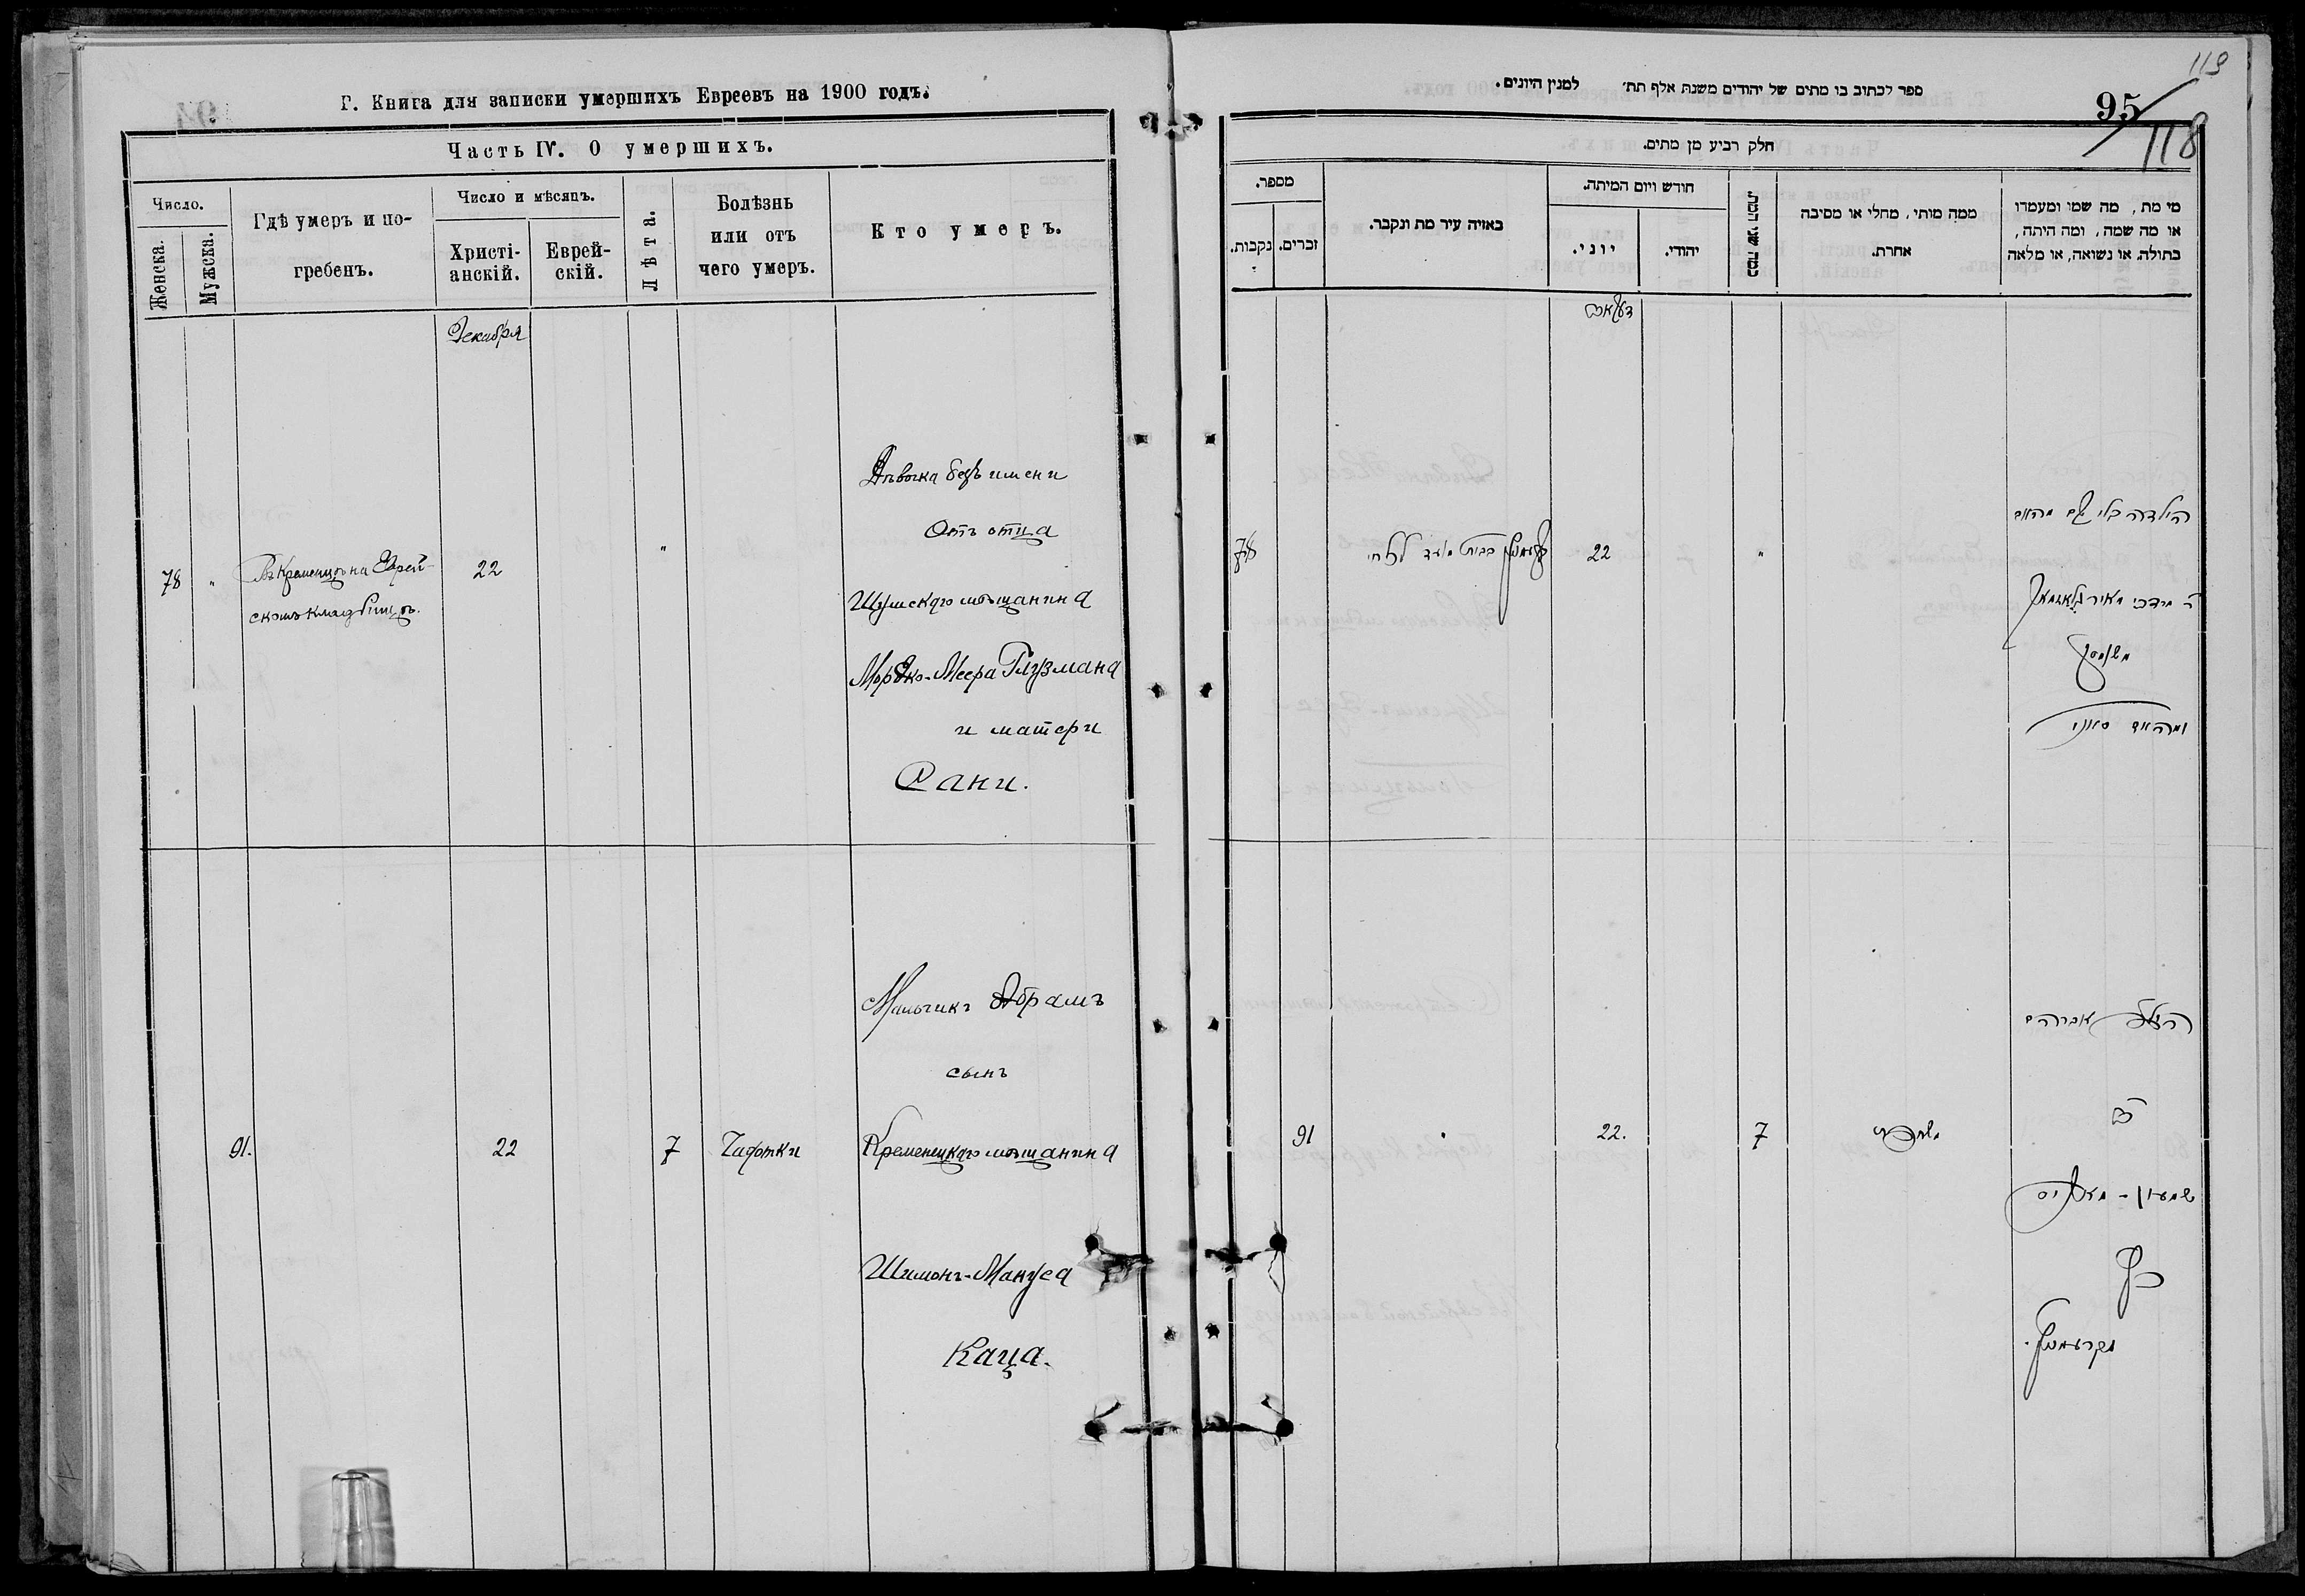 Г. Книга для записки умершихъ Евреевъ на 1900 годъ.
Часть IV. О умершихъ.
Число.
Женска.
Мужска.
Гдѣ умеръ и по-
гребенъ.
Число и мѣсяцъ.
Христі-
анскій.
Еврей-
скій.
Лѣта.
Болѣзнь
или отъ
чего умеръ.
Кто умеръ.
Декабря
78 "
Въ Кременцѣ на Еврей-
скомъ кладбищѣ.
22
"
Дѣвочка безъ имени
Отъ отца
Шумскаго мѣщанина
Мордко-Меера Глузмана
и матери
Сани.
91.
22
7
Чахотки
Мальчикъ Абрамъ
сынъ
Кременецкаго мѣщанина
Шимонъ-Мануса
Каца.
ספר לכתוב בו מתים של יהודים משנת אלף תת׳ למנין היונים.
119
95
118
חלק רביע מן מתים.
מספר.
נקבות.
זכרים.
באיזה עיר מת ונקבר.
חודש ויום המיתה.
יוני.
יהודי.
כמה שני המת.
ממה מותי, מחלי או מסיבה
אחרת.
מי מת, מה שמו ומעמדו
או מה שמה, ומה היתה,
בתולה, או נשואה, או מלאה
78
22
"
הילדה בלי שם מהאב
ר׳ מרדכי מאיר גלאזמאן
ומהאם סאני
91
22.
7
הילד אברהם
ב״ר
שמעון - מאניס
כץ
מקרעמניץ.